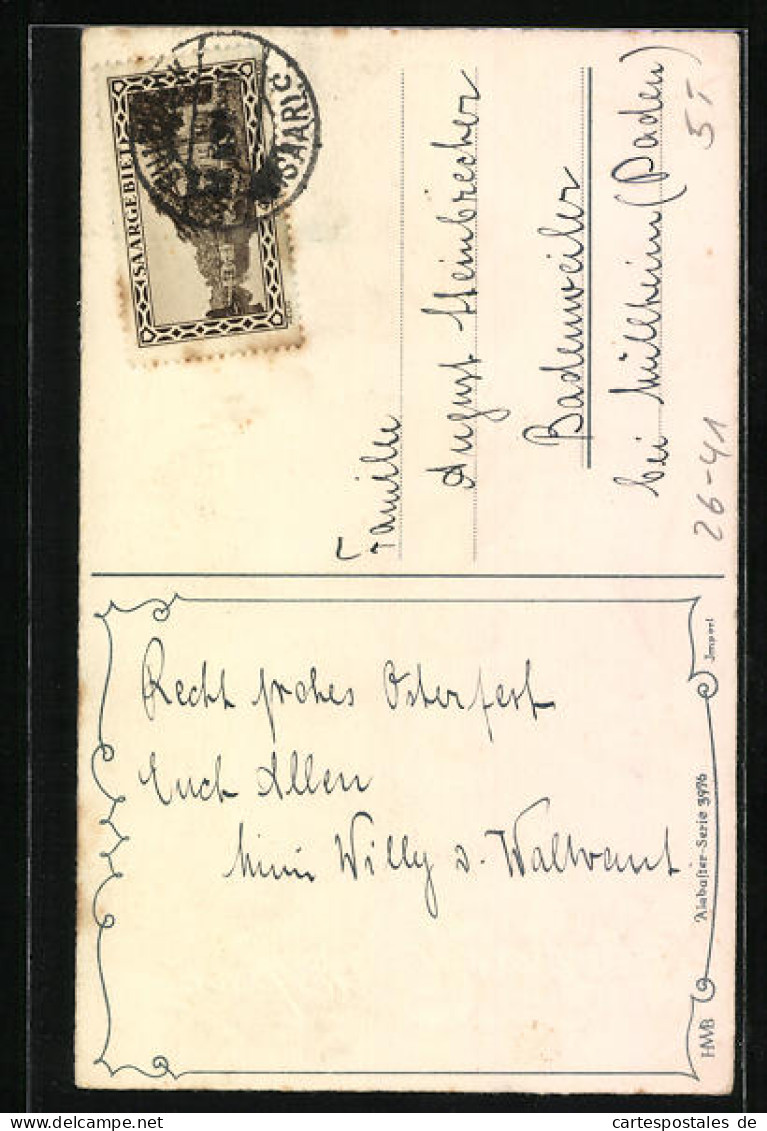 SAARGEBIET
(SAAR) c
Familie
August Steinbrecher
Badenweiler
bei Müllheim (Baden)
5 T
26-41
Recht frohes Osterfest
Euch Allen
Willy
Import
Alabaster-Serie 3996
HWB
cartespostales de